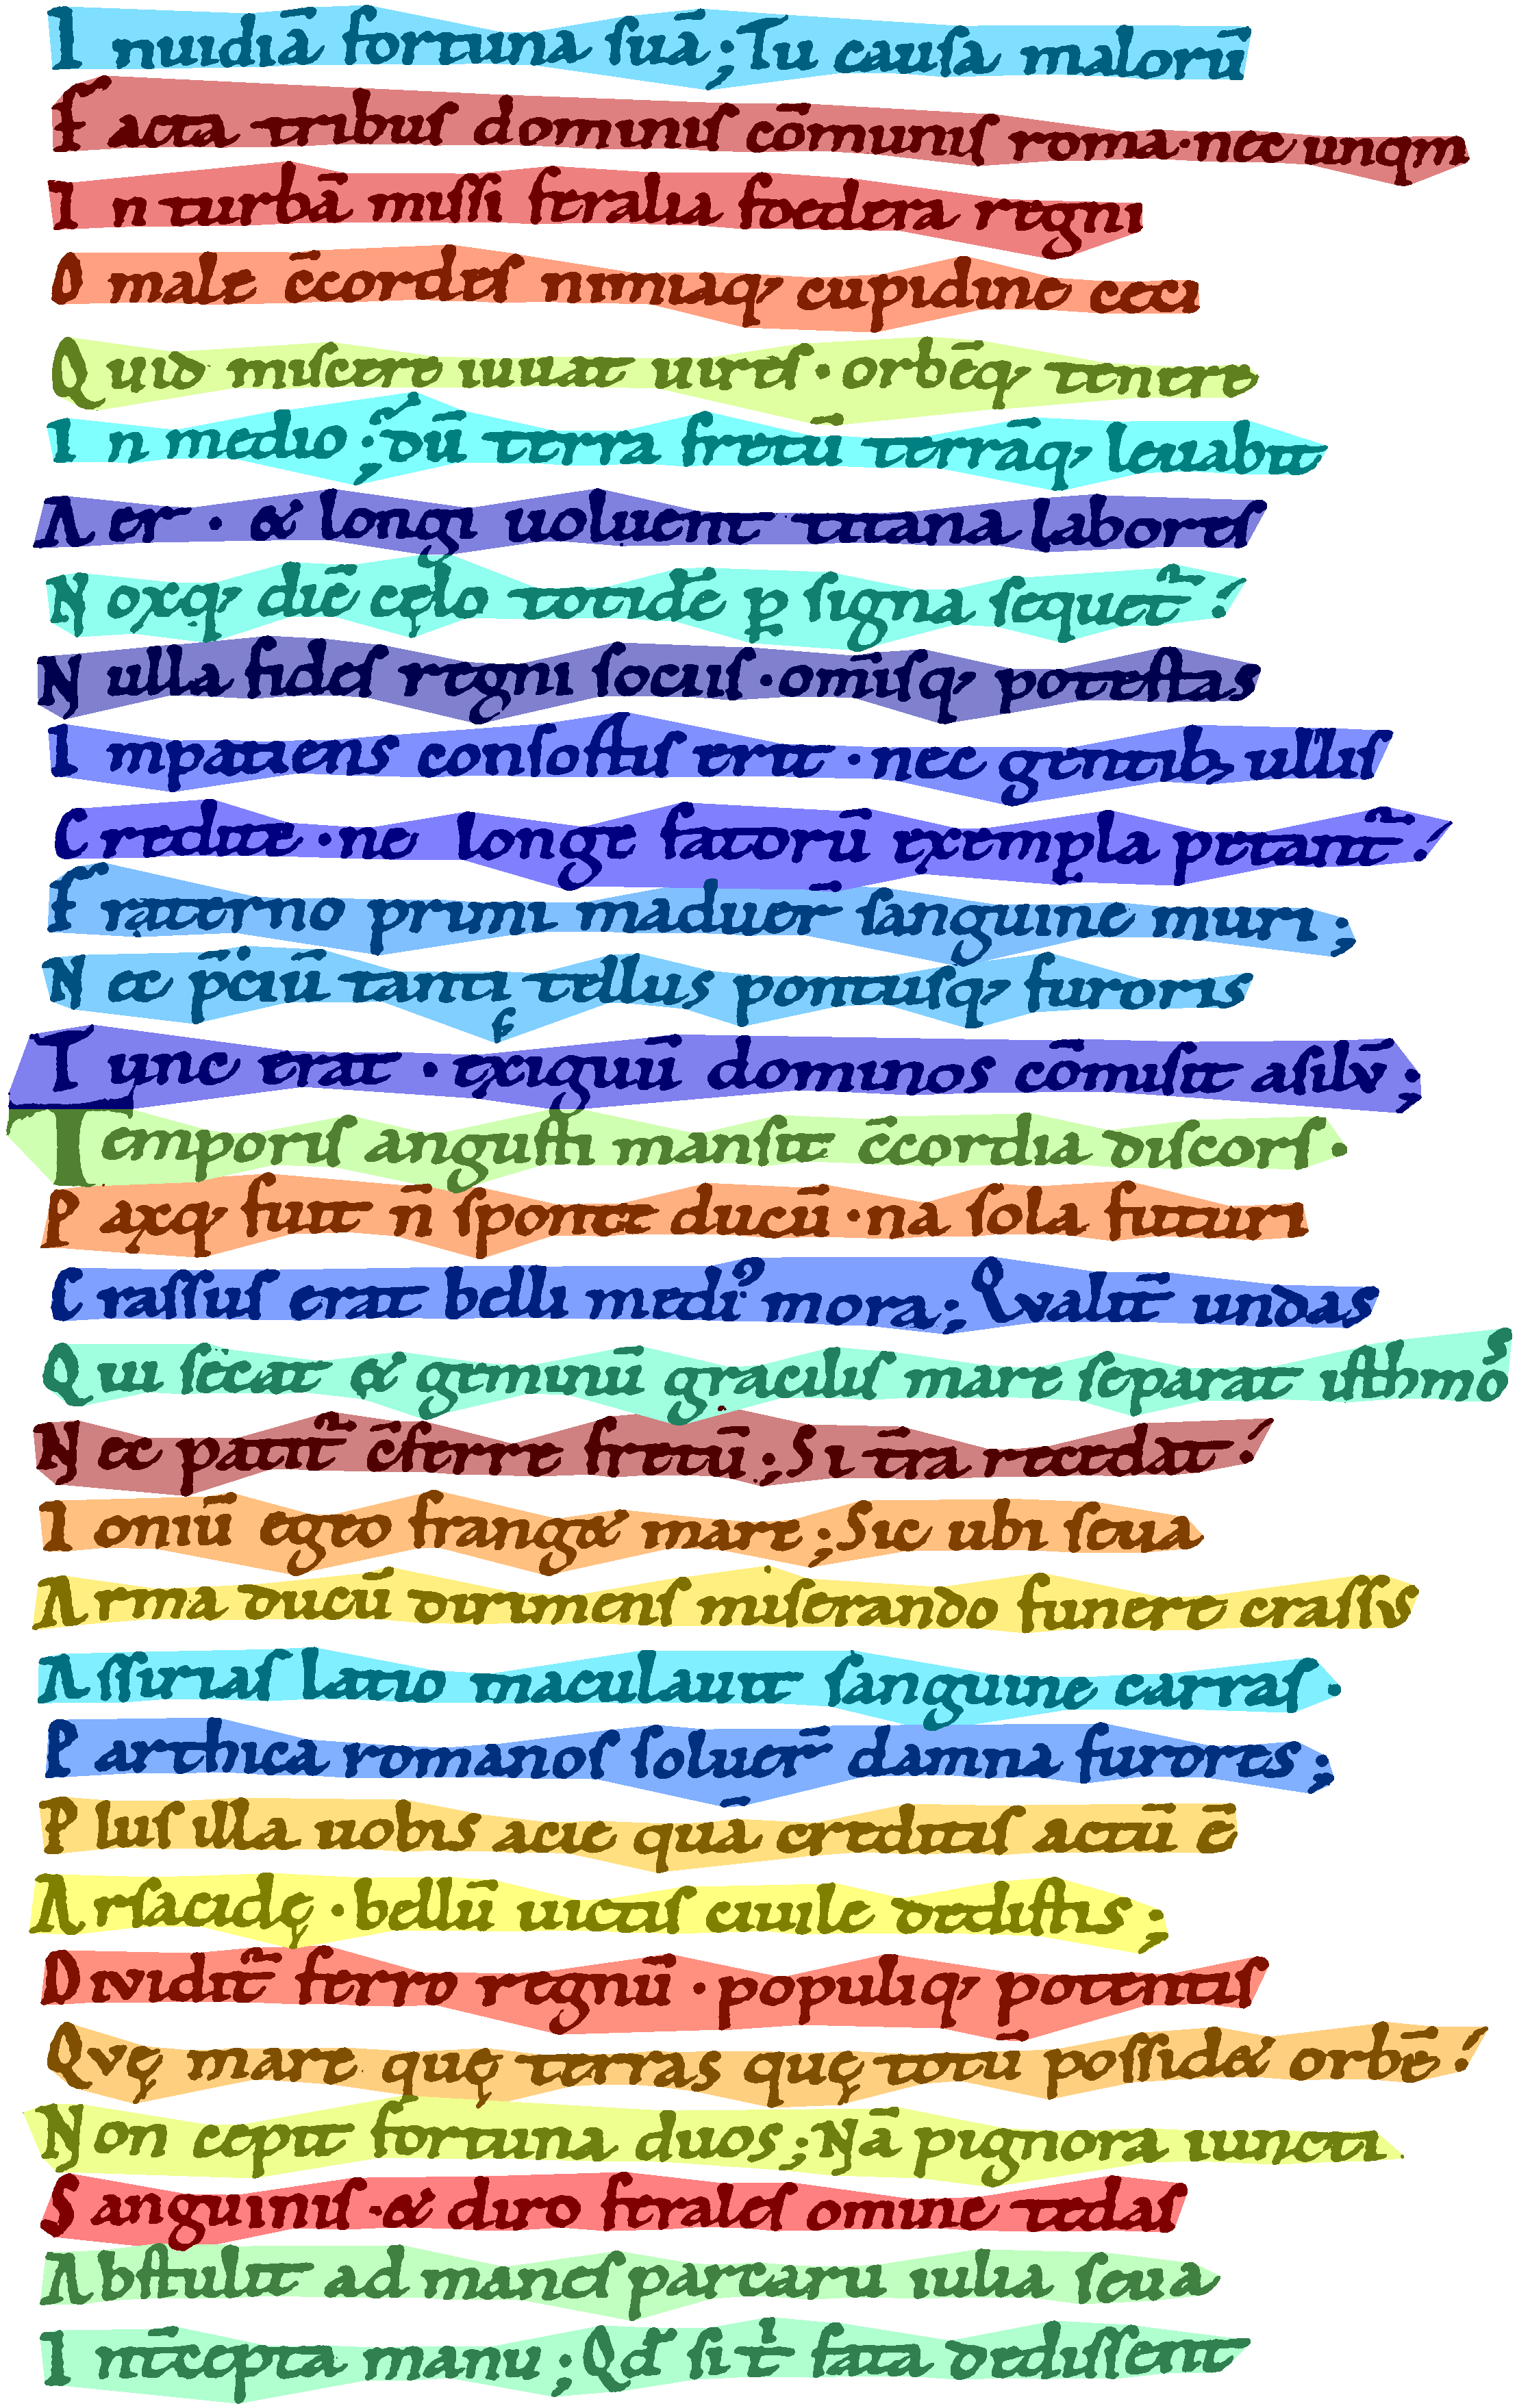 I nuidiā fortuna suā; Tu causa malorū
F acta tribus dominis cōmunis roma · nec unqm
I n turbā missi feralia foedera regni
O male c̄cordes nimiaq, cupidine ceci
Q uid miscere iuuat uires · orbēq, tenere
I n medio; dū terra fretū terrāq, leuabit
A er · & longi uoluent titana labores
N oxq, diē cęlo totidē ꝑ signa sequet᷑!
N ulla fides regni sociis · om̄isq, potestas
I mpatiens consortis erit · nec gentib; ullis
C redite · ne longe fatorū exempla petant᷑!
F raterno primi maduer̄ sanguine muri;
N ec p̄ciū tanti tellus pontusq, furoris
T unc erat · exiguū dominos cōmisit asilv̄;
Temporis angusti mansit c̄cordia discors ·
P axq, fuit n̄ sponte ducū · na sola futuri
C rassus erat belli mediꝰ mora; Qvalit̄ undas
Q ui secat & geminū gracilis mare separat isthmoˢ
N ec patit᷑ c̄ferre fretū; Si t̄ra recedat!
I oniū egeo frang& mare; Sic ubi seua
A rma ducū dirimens miserando funere crassvs
A ssirias latio maculauit sanguine carras ·
P arthica romanos soluer̄ damna furores;
P lus illa uobis acie quā creditis actū ē
A rsacidę · bellū uictis ciuile dedistis;
D ividit᷑ ferro regnū · populiq, potentis
Qvę mare quę terras quę totū possid& orbē!
N on cepit fortuna duos; Nā pignora iuncti
S anguinis · & diro ferales omine tedas
A bstulit ad manes parcaru iulia seua
I nt̄cepta manu; Qd̄ si t͛ fata dedissent